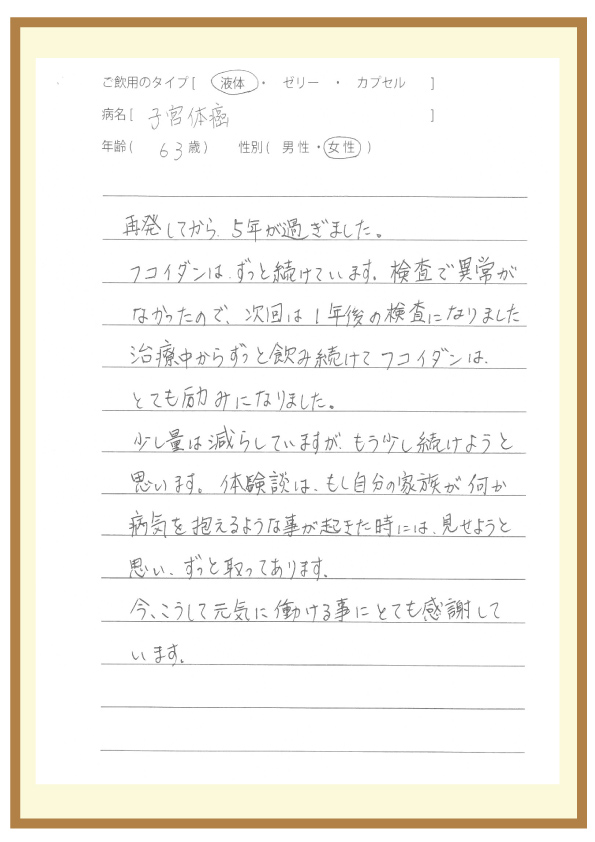 ご飲用のタイプ[ 液体 ・ ゼリー ・ カプセル ]
病名[ 子宮体癌 ]
年齢( 63歳) 性別( 男性・女性 )
再発してから、5年が過ぎました。
フコイダンは、ずっと続けています。検査で異常が
なかったので、次回は1年後の検査になりました
治療中からずっと飲み続けてフコイダンは、
とても励みになりました。
少し量は減らしていますが、もう少し続けようと
思います。体験談は、もし自分の家族が何か
病気を抱えるような事が起きた時には、見せようと
思い、ずっと取ってあります。
今、こうして元気に働ける事にとても感謝して
います。